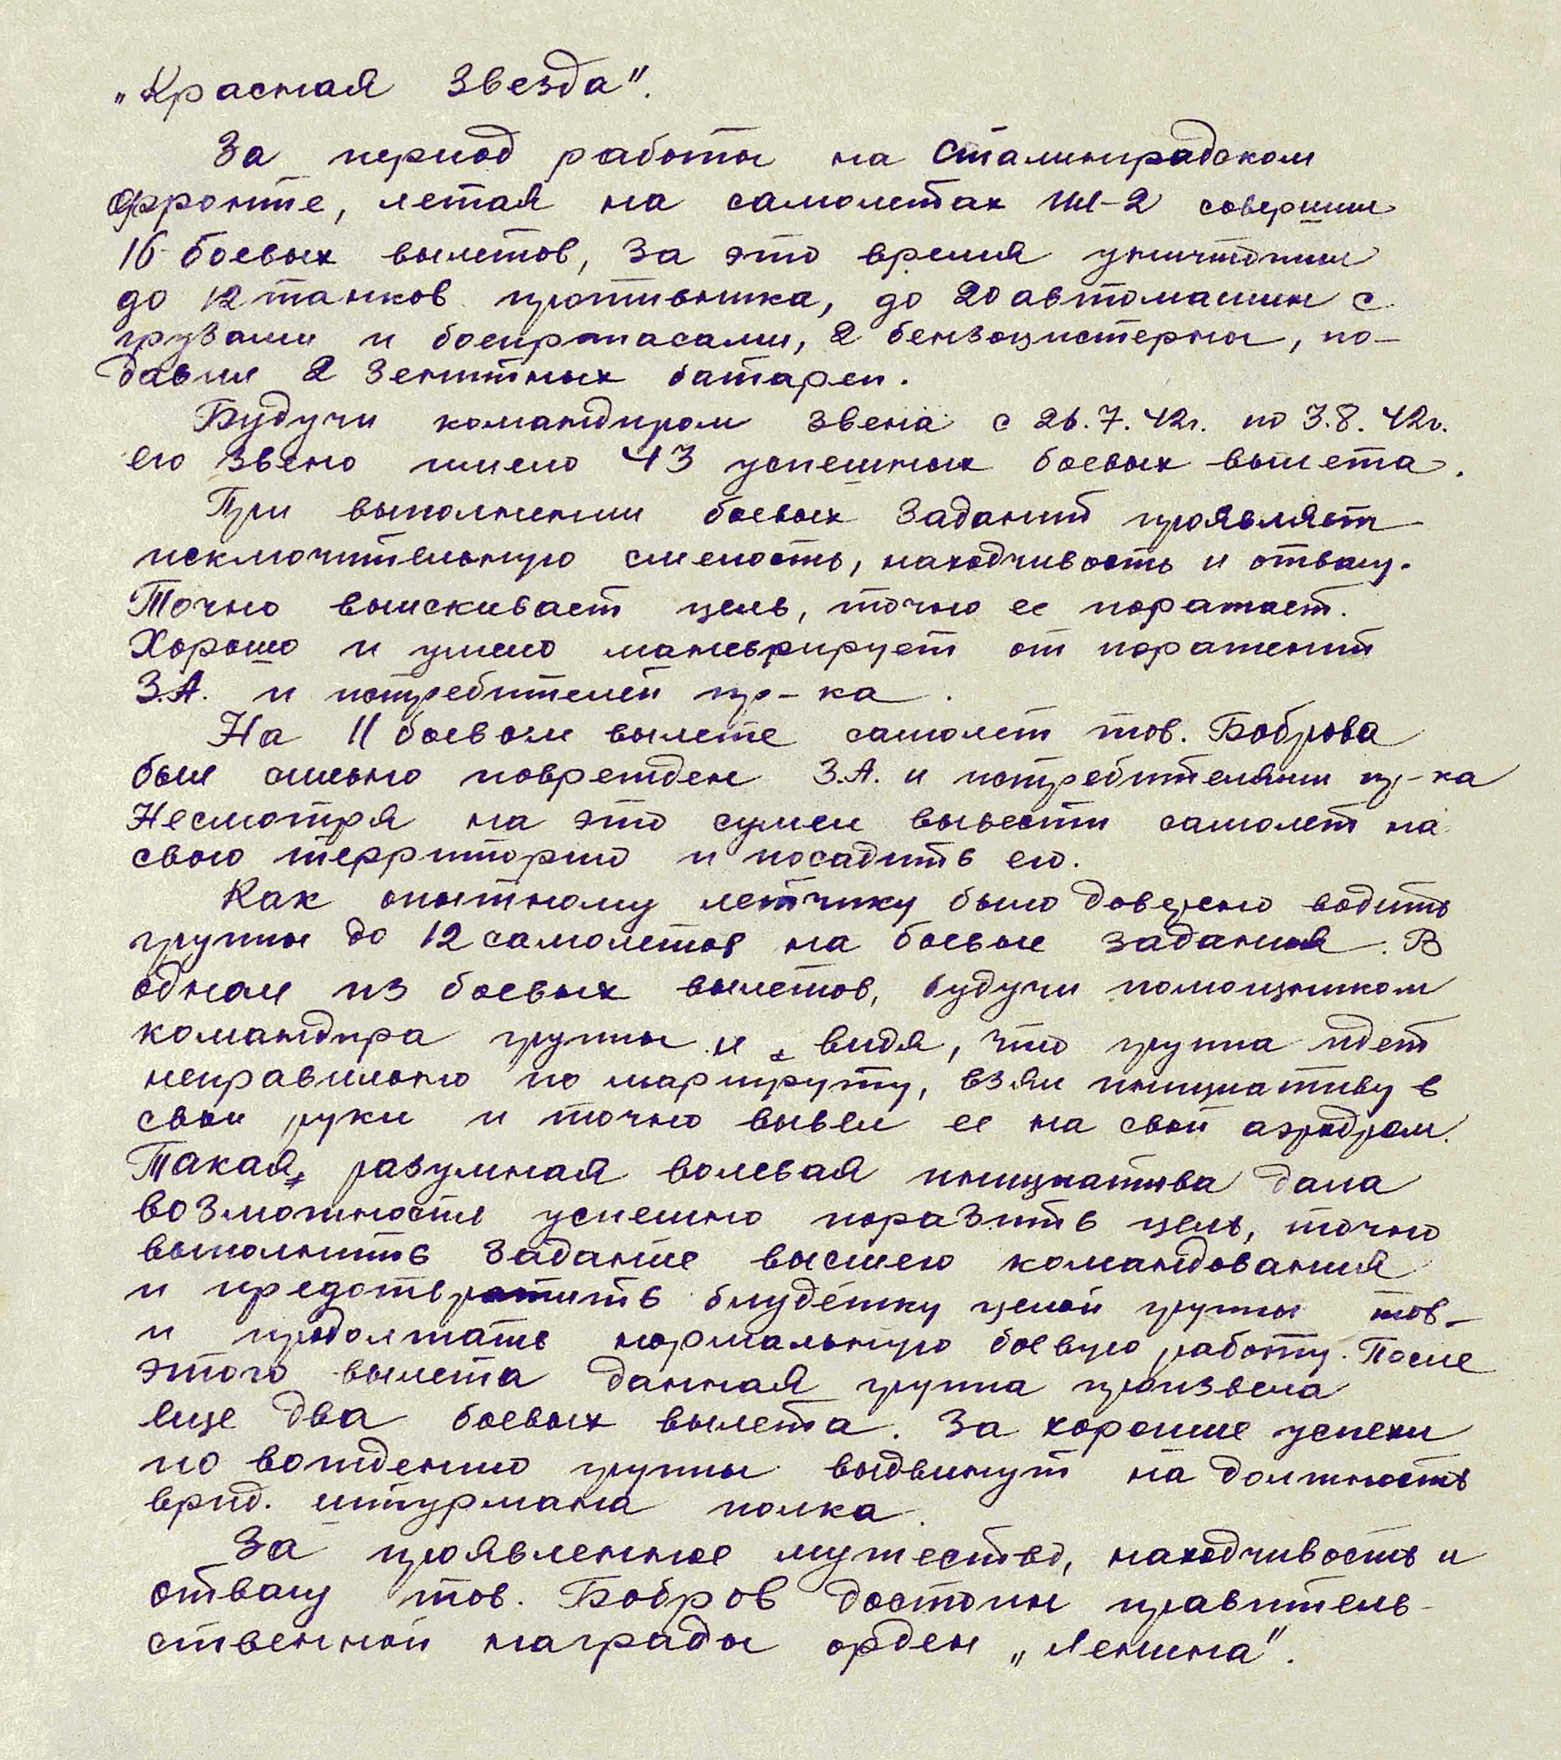 „Красная Звезда".
За период работы на Сталинградском
фронте, летая на самолетах Ил-2 совершил
16 боевых вылетов, За это время уничтожил
до 12 танков противника, до 20 автомашин с
грузами и боеприпасами, 2 бензоцистерны, по-
давил 2 Зенитных батареи.
Будучи командиром звена с 26.7.42г. по 3.8.42г.
его Звено имело 43 успешных боевых вылета.
При выполнении боевых Заданий проявляет
исключительную смелость, находчивость и отвагу.
Точно выискивает цель, точно ее поражает.
Хорошо и умело маневрирует от поражений
З.А. и истребителей пр-ка.
На 11 боевом вылете самолет тов. Боброва
был сильно поврежден З.А. и истребителями пр-ка
Несмотря на это сумел вывести самолет на
свою территорию и посадить его.
Как опытному летчику было доверено водить
группы до 12 самолетов на боевые задания. В
одном из боевых вылетов, будучи помощником
командира группы и видя, что группа идет
неправильно по маршруту, взял инициативу в
свои руки и точно вывел ее на свой аэродром.
Такая разумная волевая инициатива дала
возможность успешно поразить цель, точно
выполнить Задание высшего командования
и предотвратить блудежку целой группы тов-
и продолжать нормальную боевую работу. После
этого вылета данная группа произвела
еще два боевых вылета. За хорошие успехи
по вождению группы выдвинут на должность
врид. штурмана полка.
За проявленное мужество, находчивость и
отвагу тов. Бобров достоин правитель-
ственной награды орден „Ленина".